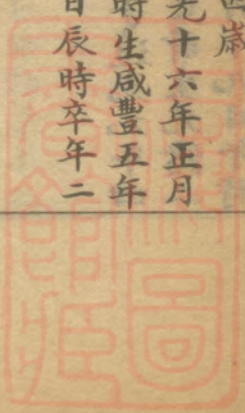 四歳
光十六年正月
時生咸豐五年
日辰時卒年二
圖
館